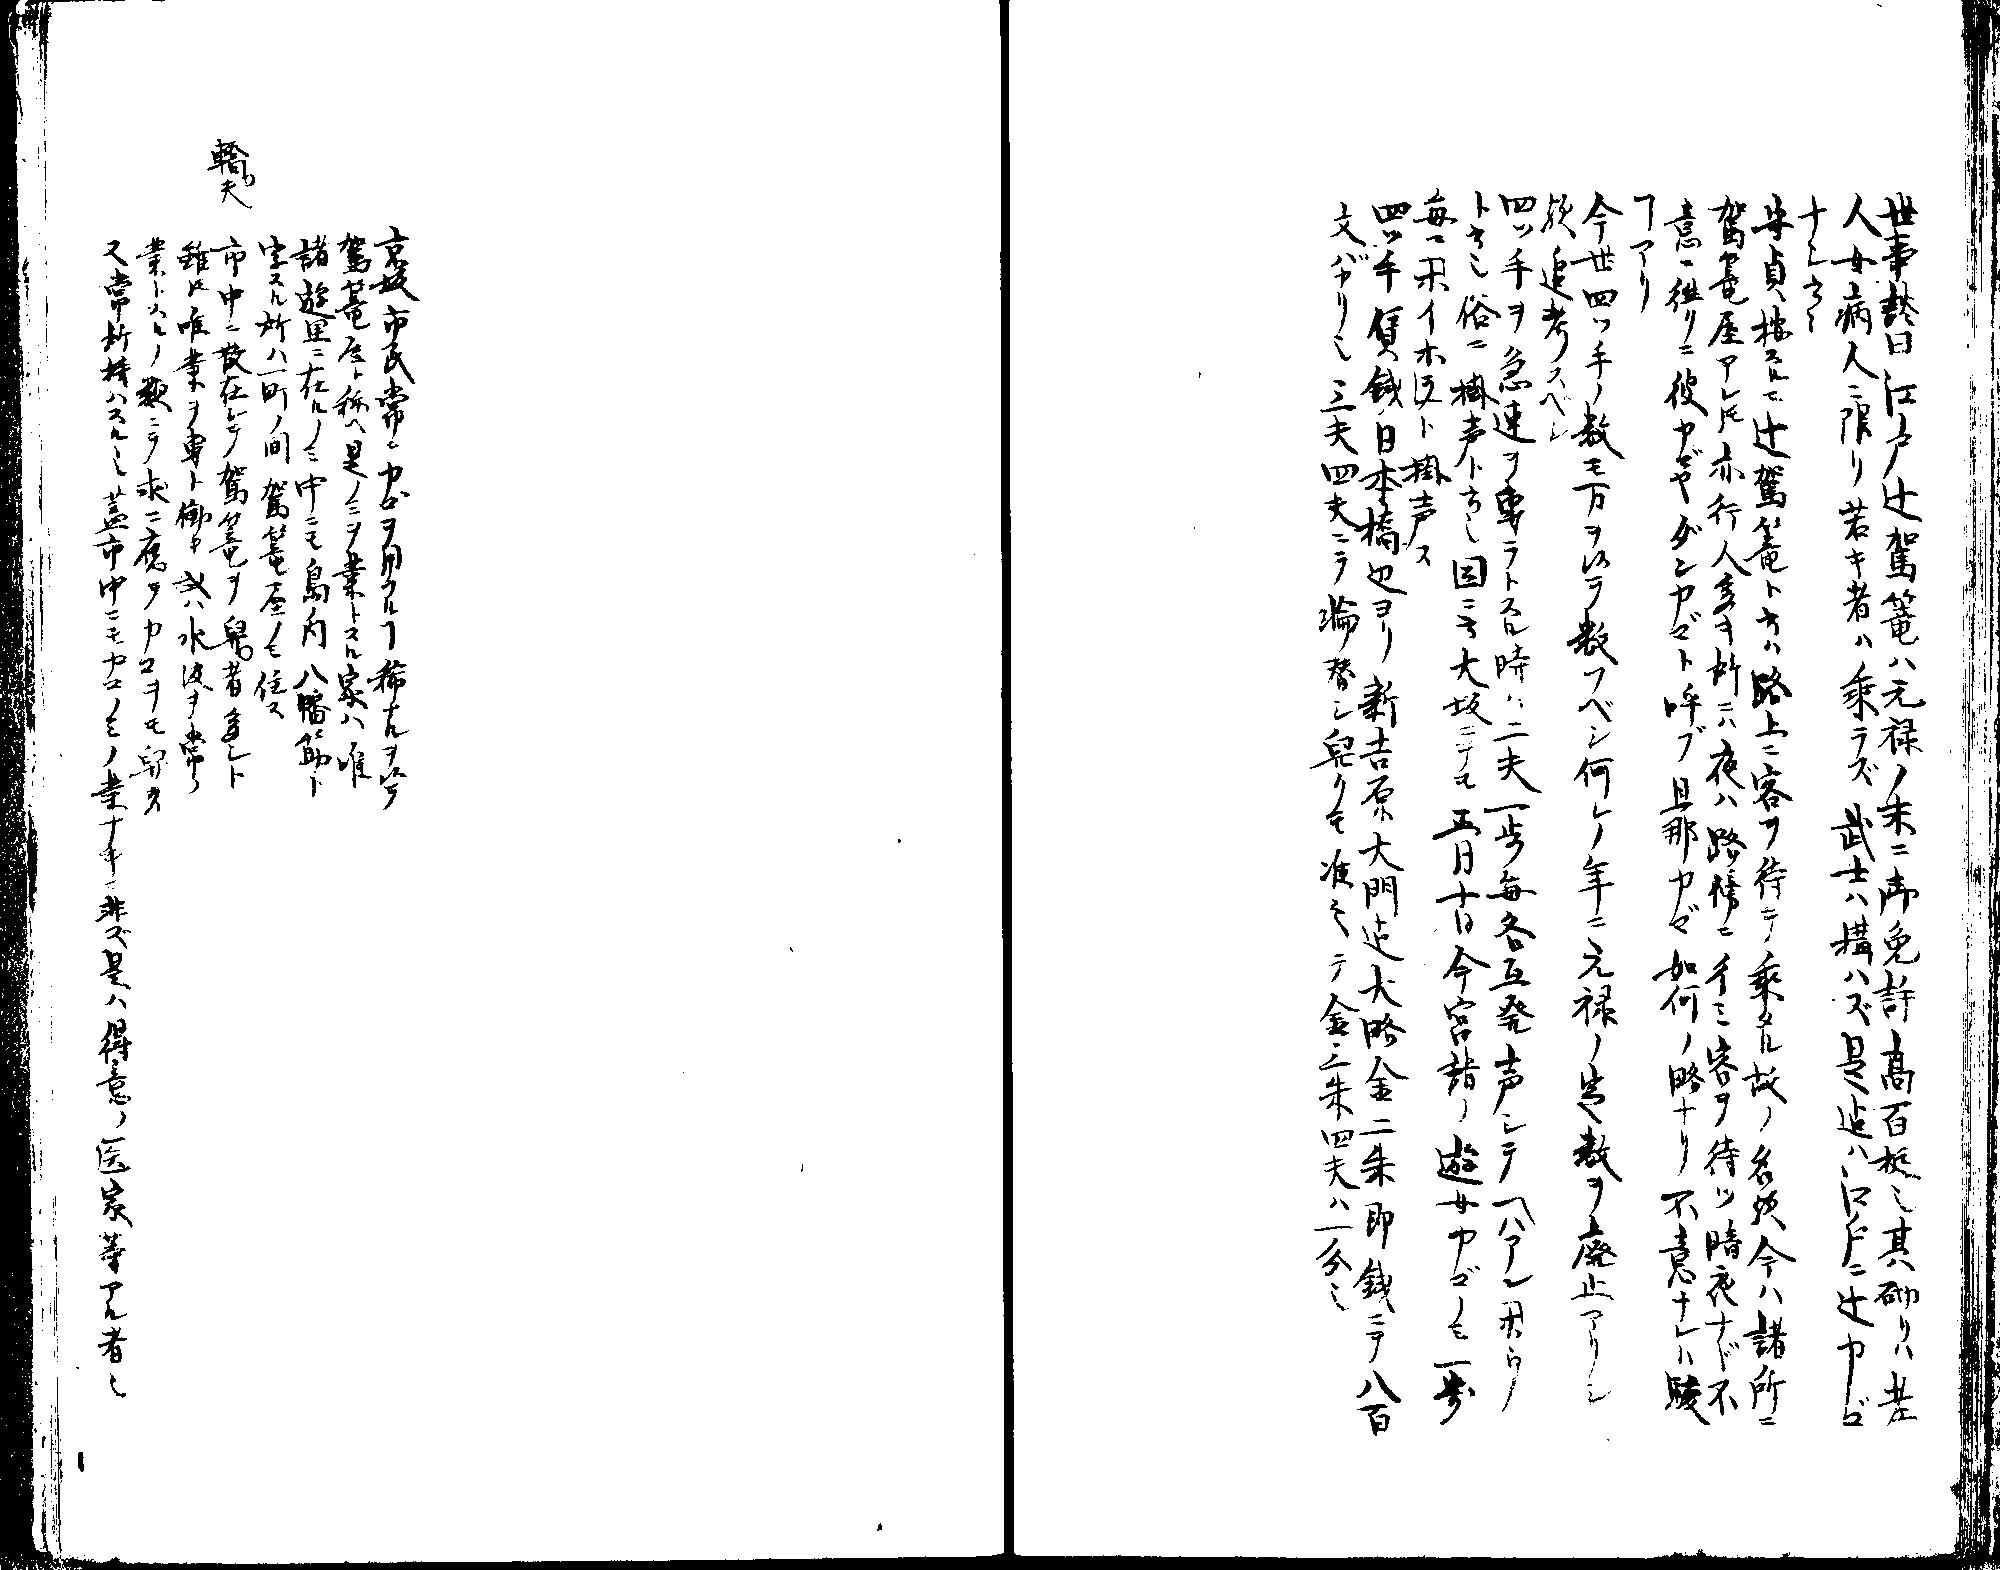 世事談曰江戸ノ辻駕篭ハ元禄ノ末ニ御免許高百挺也其砌リハ老
人女病人ニ限リ若キ者ハ乗ラズ武士ハ構ハズ是迄ハ江戸ニ辻カゴ
ナシト云々
守貞按スルニ辻駕篭ト云ハ路上ニ客ヲ待テ乗スル故ノ名欤今ハ諸所ニ
駕篭屋アレ𪜈亦行人多キ所ニハ夜ハ路傍ニ彳ミ客ヲ待ツ暗夜ナド不
意ニ徃リニ彼カゴヤダンカゴト呼ブ旦那カゴ如何ノ略ナリ不意ナレハ駭
ヿアリ
今世四ツ手ノ数モ万ヲ以テ数フベシ何レノ年ニ元禄ノ定数ヲ廃止アリシ
欤追考スベシ
四ツ手ヲ急速ヲ専ラトスル時ハ二夫一歩毎各互発声シテ ハアン ホウノ
ト云也俗ニ掛声ト云也因ニ云大坂ニテモ正月十日今宮詣ノ遊女カゴノミ一歩
毎ニホイホイト掛声ス
四ツ手賃銭日本橋辺ヨリ新吉原大門迄大略金二朱即銭ニテ八百
文バカリ也三夫四夫ニテ輪替シ舁クモ准之テ金三朱四夫ハ一分也
轎夫
京坂市民常ニカゴヲ用フルヿ稀ナルヲ以テ
駕篭屋ト称ヘ是ノミヲ業トスル家ハ唯
諸遊里ニ在ルノミ中ニモ島ノ内八幡筋ト
字スル所ハ一町ノ間駕篭屋ノミ住ス
市中ニ散在シテ駕篭ヲ舁者多シト
雖𪜈唯業ヲ専ト 或ハ水汲ヲ常ノ
業トスルノ 求ニ應テカコヲモ舁ク
又常所持ハスル也蓋市中ニモカコノミノ業ナキニ非ズ是ハ得意ノ医家等アル者也